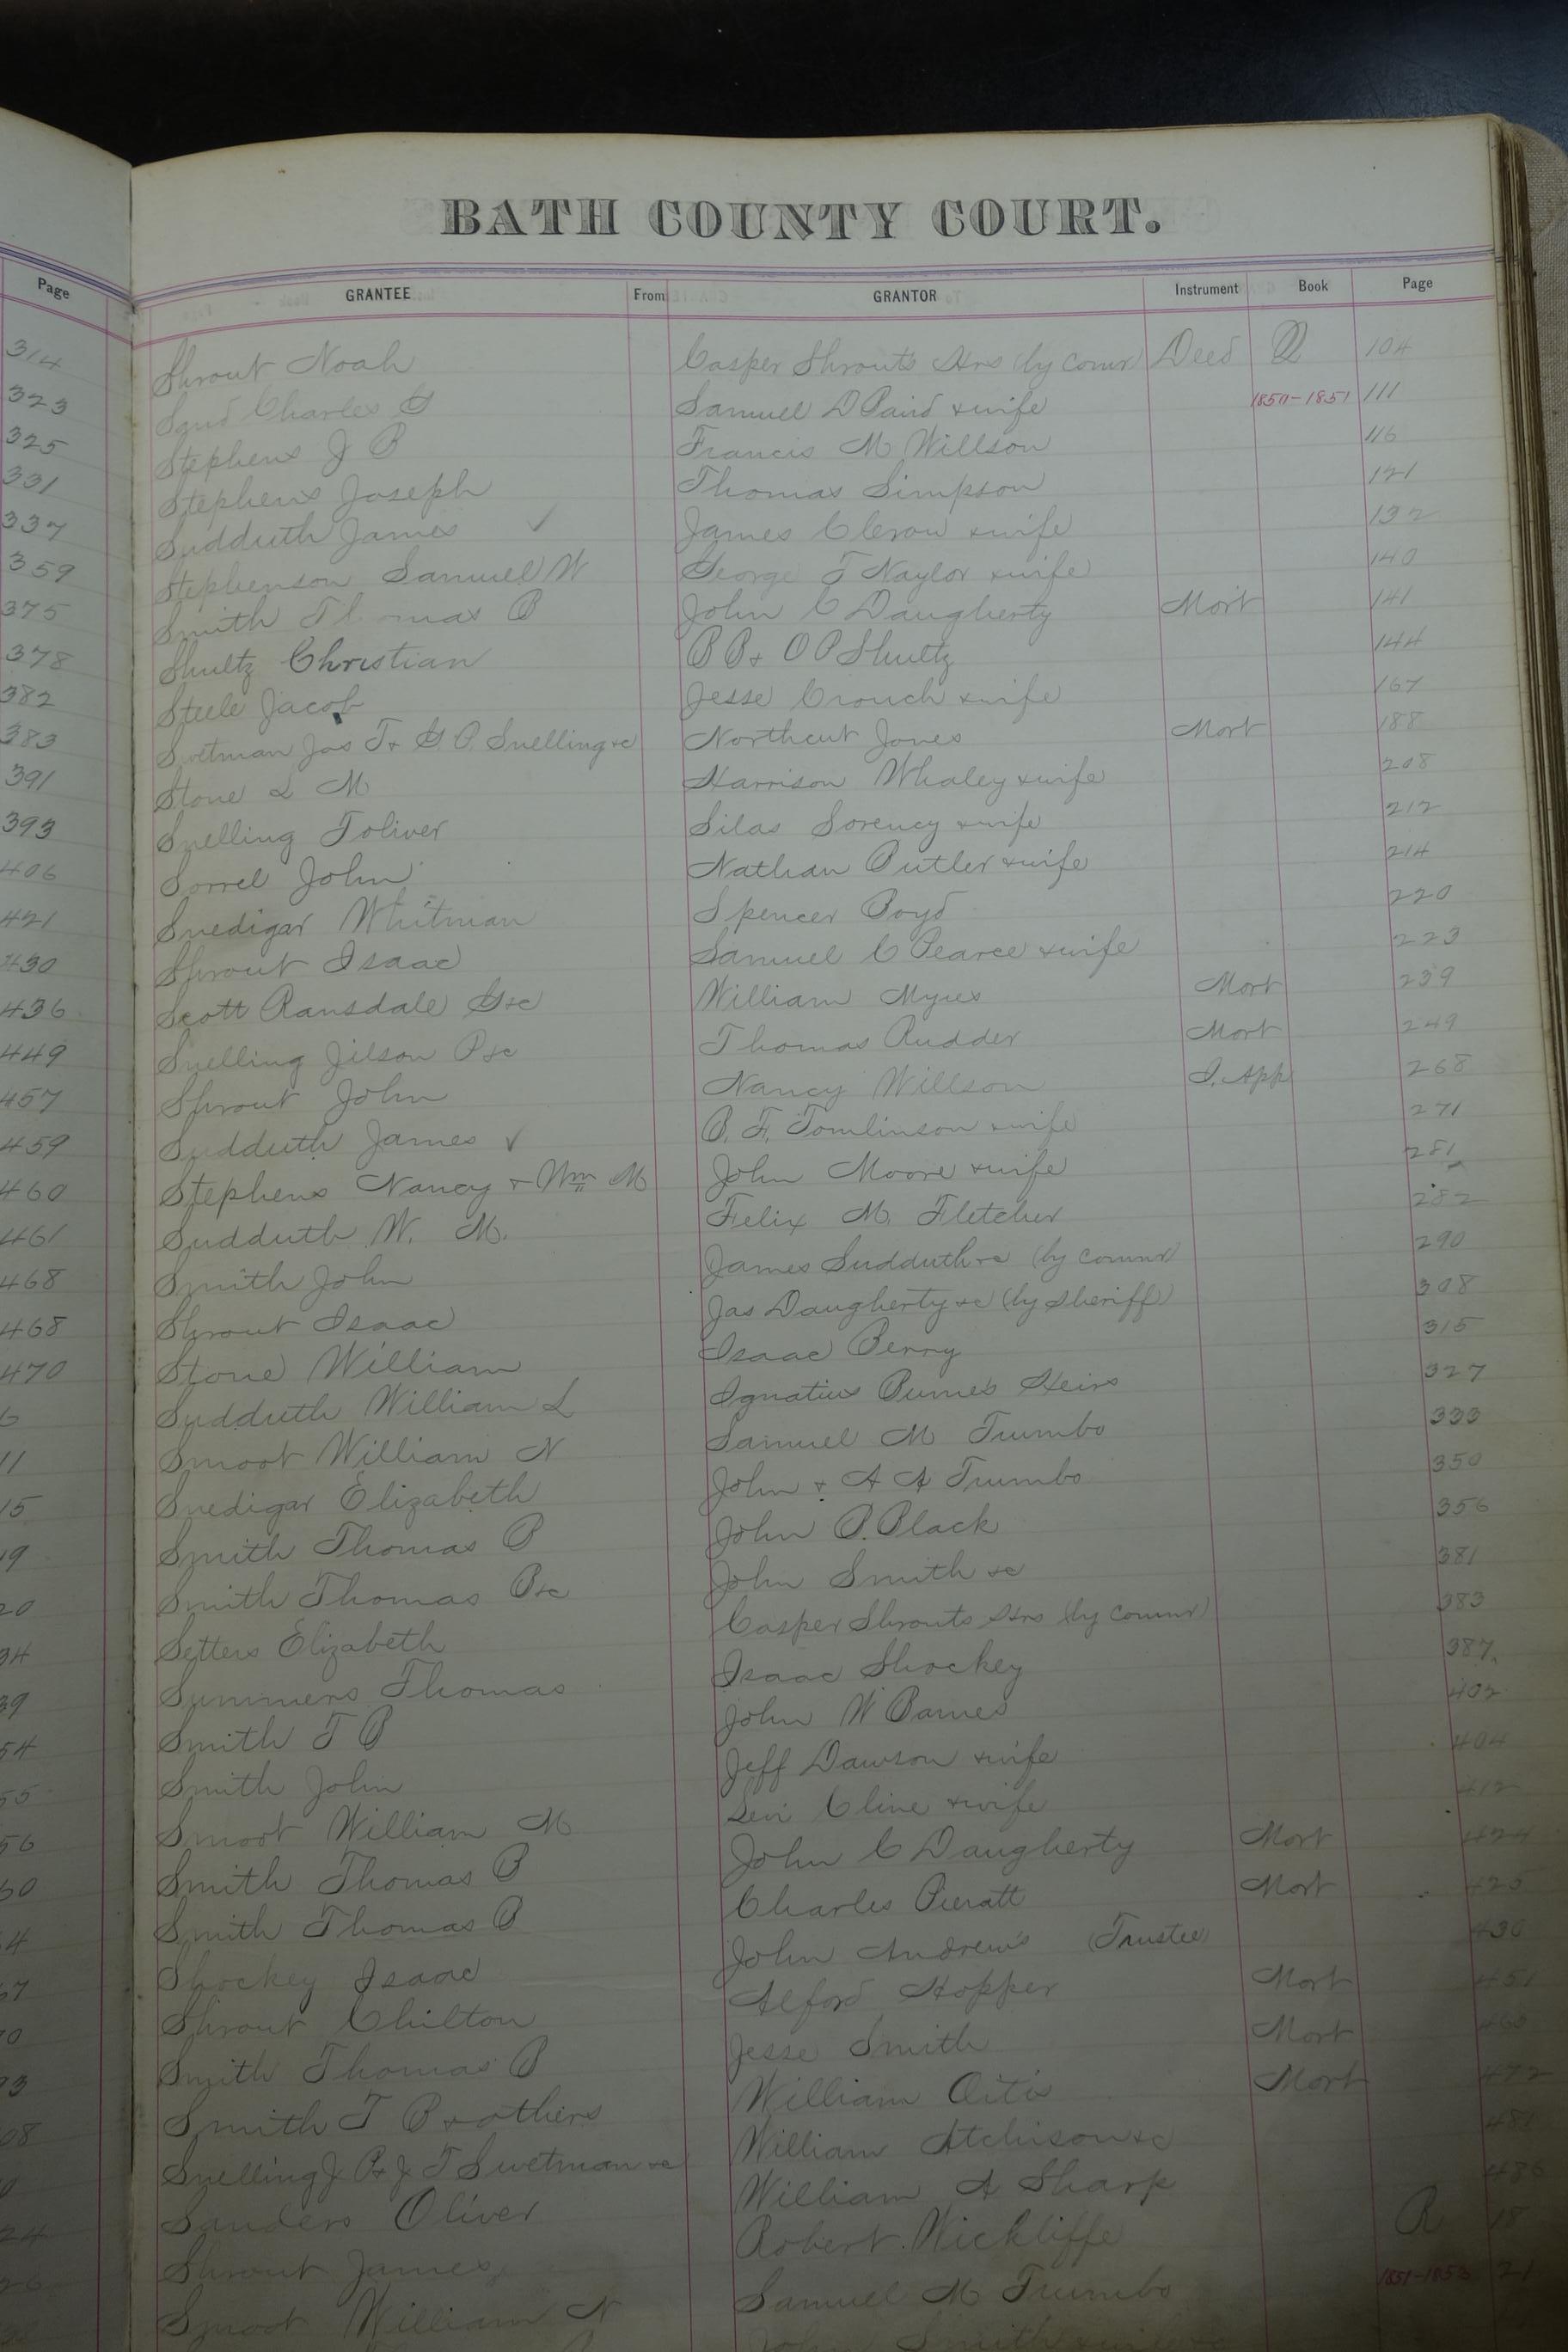 BATH COUNTY COURT.
Page GRANTEE From GRANTOR Instrument Book Page
314 Shrout Noah Casper Shrouts Hrs (by comr) Deed Q 104
323 Charles G Samuel D Baird & wife 1850-1851 111
325 Stephens J B Francis M Willson 116
331 Stephens Joseph Thomas Simpson 121
337 Sudduth James ✓ James C Crow & wife 132
359 Stephenson Samuel W George T Naylor & wife 140
375 Smith Thomas B John C Daugherty Mort 141
378 Shultz Christian B B & O P Shultz 144
382 Steele Jacob Jesse Crouch & wife 167
383 Swetman Jas T & G P. Snelling &c Northcut Jones Mort 188
391 Stone L M Harrison Whaley & wife 208
393 Snelling Toliver Silas Sorency & wife 212
406 Sorrel John Nathan Butler & wife 214
421 Snedigar Whitman Spencer Boyd 220
430 Shrout Isaac Samuel C Pearce & wife 223
436 Scott Ransdale G&c William Myres Mort 239
449 Snelling Jilson P&c Thomas Rudder Mort 249
457 Shrout John Nancy Willson I. App 268
459 Sudduth James ✓ B. F. Tomlinson & wife 271
460 Stephens Nancy & Wm M John Moore & wife 281
461 Sudduth W. M. Felix M. Fletcher 282
468 Smith John James Sudduth &c (by commr) 290
468 Shrout Isaac Jas Daugherty &c (by sheriff) 308
470 Stone William Isaac Berry 315
6 Sudduth William L Ignatius Heirs 327
11 Smoot William N Samuel M Trumbo 333
15 Snedigar Elizabeth John & A A Trumbo 350
19 Smith Thomas B John P. Black 356
20 Smith Thomas B&c John Smith &c 381
34 Setters Elizabeth Casper Shrouts Hrs (by commr) 383
39 Summers Thomas Isaac Shockey 387
54 Smith T B John W Barnes 402
55 Smith John Jeff Dawson & wife 404
56 Smoot William M Levi Cline & wife 412
60 Smith Thomas B John C Daugherty Mort 424
4 Smith Thomas B Charles Pieratt Mort 425
67 Shockey Isaac John Andrews (Trustee) 430
0 Shrout Chilton Alford Hopper Mort 451
93 Smith Thomas B Jesse Smith Mort 460
08 Smith T B & others William Mort 472
Snelling J P & J T Swetman &c William Atchison &c 481
24 Sanders Oliver William A Sharp 486
26 Shrout James Robert Wickliffe R 18
Smoot William N Samuel M Trumbo 1851-1853 21
John Smith